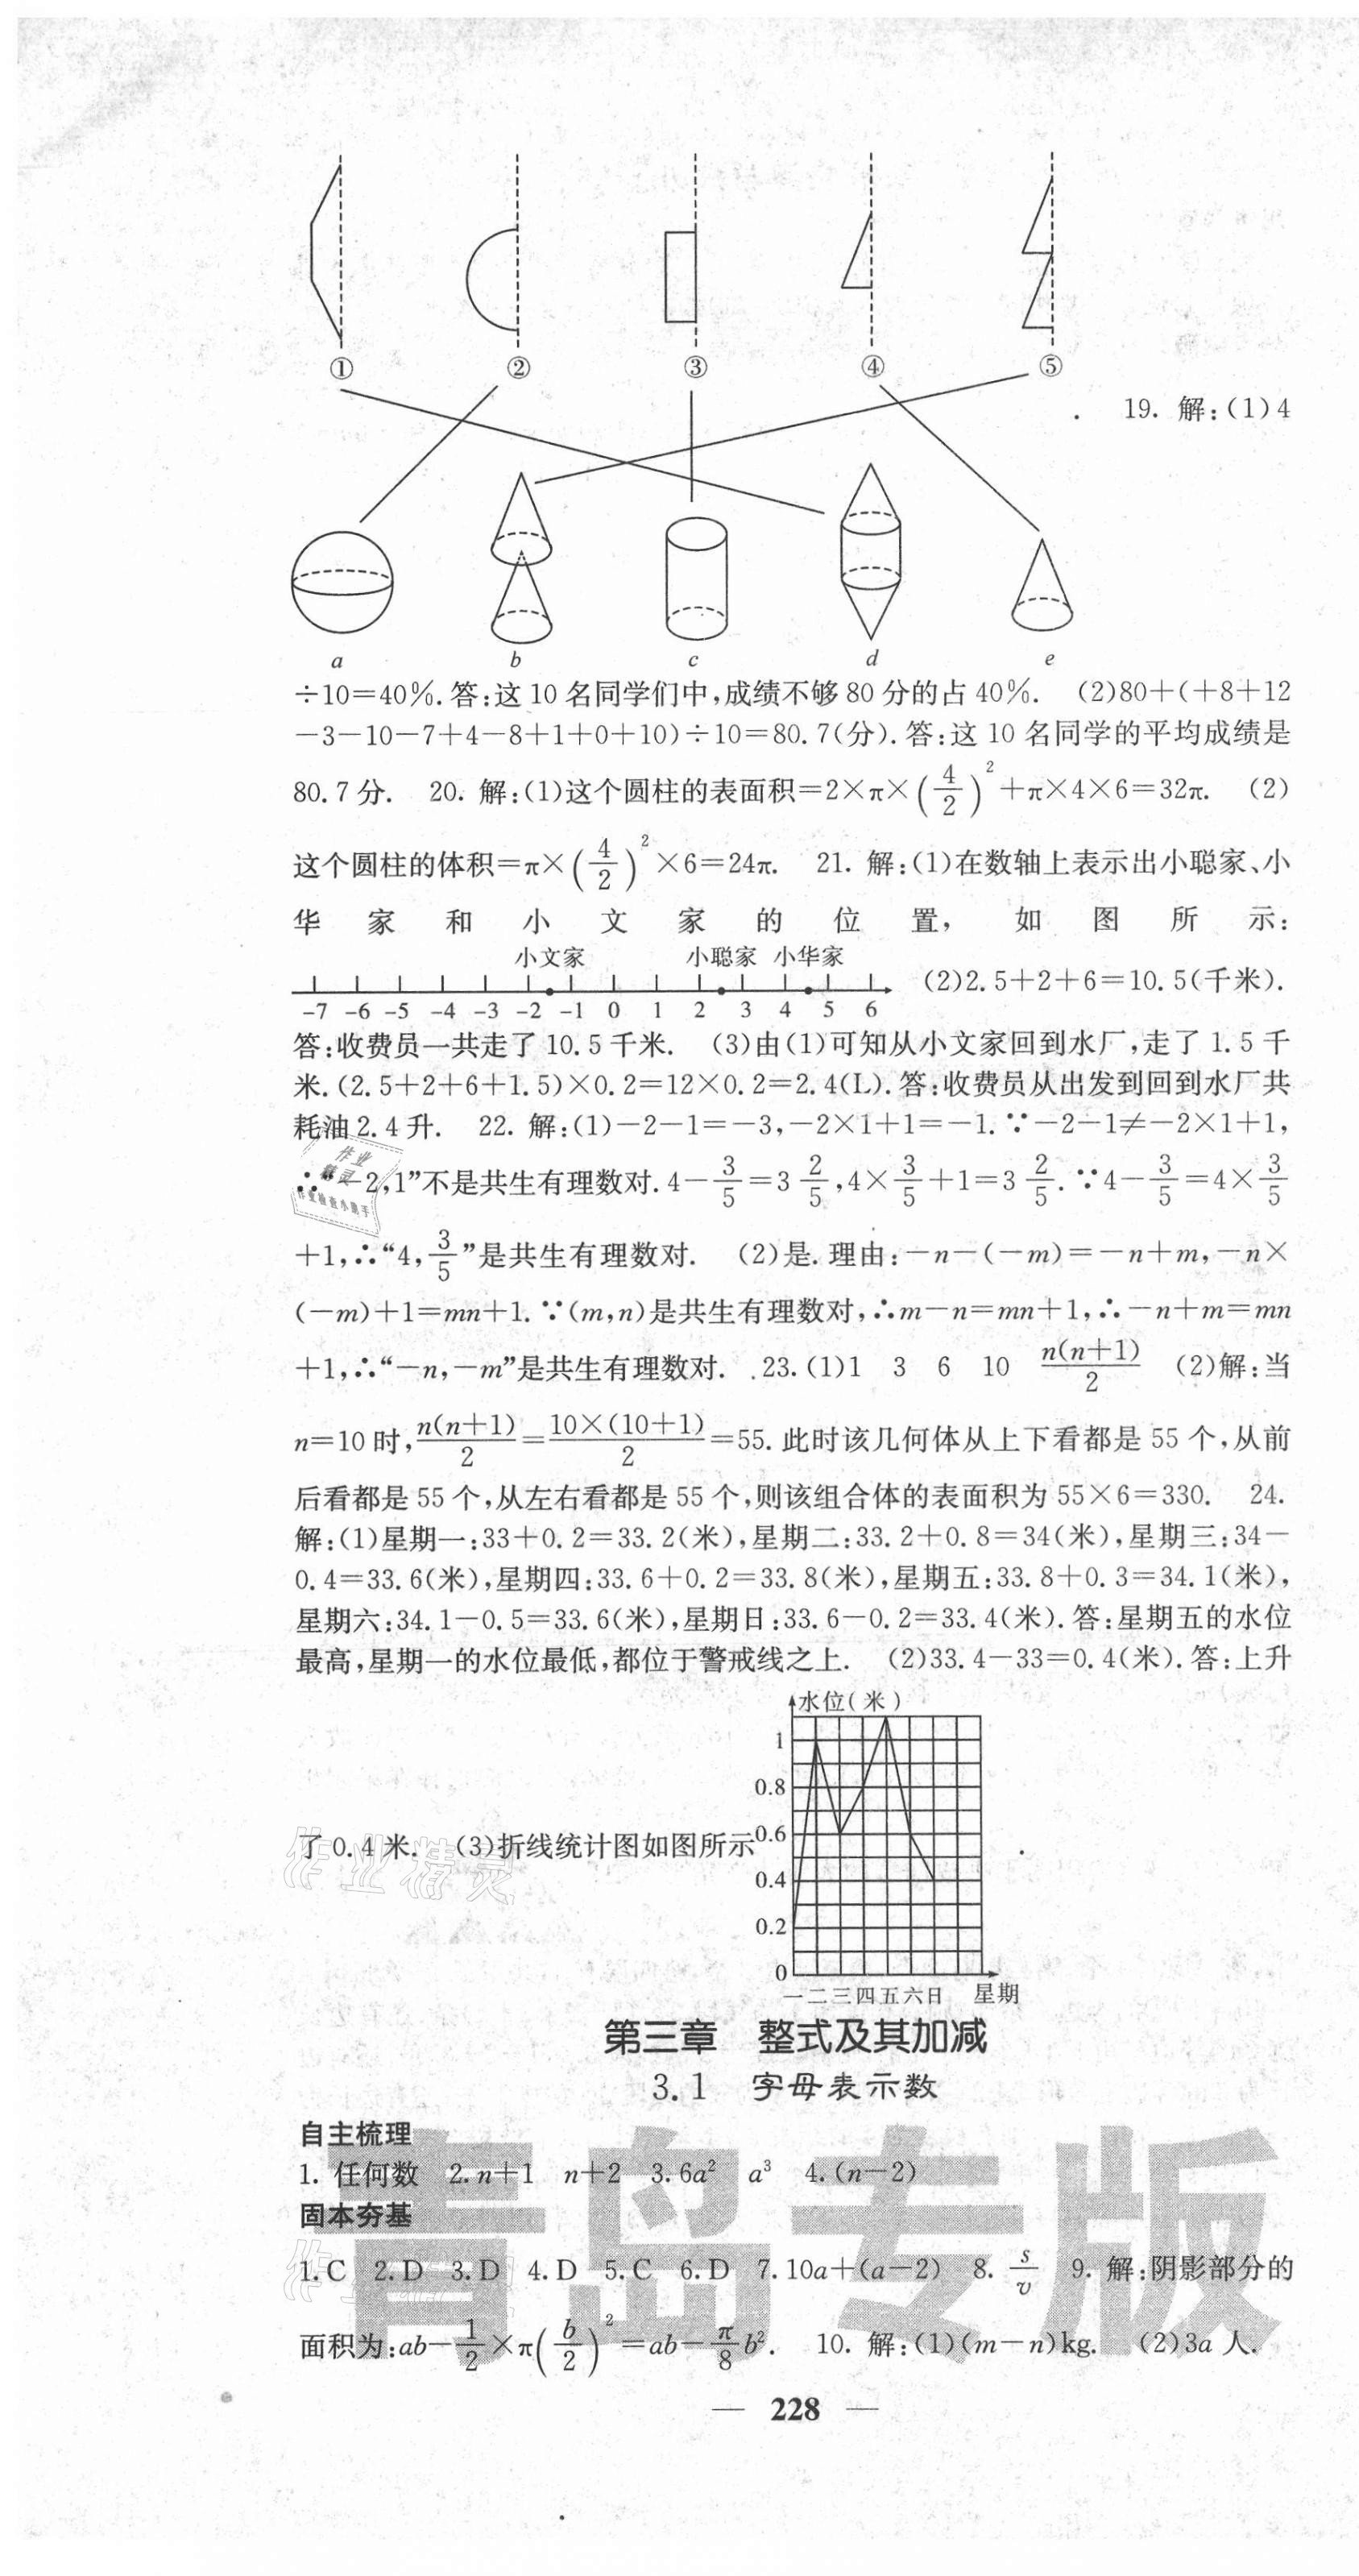 ① ② ③ ④ ⑤
. 19. 解:(1)4
a b c d e
÷10=40%.答:这 10 名同学们中,成绩不够 80 分的占 40%. (2)80+(+8+12
-3-10-7+4-8+1+0+10)÷10=80.7(分).答:这 10 名同学的平均成绩是
80.7 分. 20. 解:(1)这个圆柱的表面积=2×π×(4/2)²+π×4×6=32π. (2)
这个圆柱的体积=π×(4/2)²×6=24π. 21. 解:(1)在数轴上表示出小聪家、小
华家和小文家的位置,如图所示:
小文家 小聪家 小华家
-7 -6 -5 -4 -3 -2 -1 0 1 2 3 4 5 6 (2)2.5+2+6=10.5(千米).
答:收费员一共走了 10.5 千米. (3)由(1)可知从小文家回到水厂,走了 1.5 千
米.(2.5+2+6+1.5)×0.2=12×0.2=2.4(L).答:收费员从出发到回到水厂共
耗油 2.4 升. 22. 解:(1)-2-1=-3,-2×1+1=-1.∵-2-1≠-2×1+1,
∴“-2,1”不是共生有理数对.4-3/5=3 2/5,4×3/5+1=3 2/5.∵4-3/5=4×3/5
+1,∴“4,3/5”是共生有理数对. (2)是.理由:-n-(-m)=-n+m,-n×
(-m)+1=mn+1.∵(m,n)是共生有理数对,∴m-n=mn+1,∴-n+m=mn
+1,∴“-n,-m”是共生有理数对. 23.(1)1 3 6 10 n(n+1)/2 (2)解:当
n=10 时,n(n+1)/2=10×(10+1)/2=55.此时该几何体从上下看都是 55 个,从前
后看都是 55 个,从左右看都是 55 个,则该组合体的表面积为 55×6=330. 24.
解:(1)星期一:33+0.2=33.2(米),星期二:33.2+0.8=34(米),星期三:34-
0.4=33.6(米),星期四:33.6+0.2=33.8(米),星期五:33.8+0.3=34.1(米),
星期六:34.1-0.5=33.6(米),星期日:33.6-0.2=33.4(米).答:星期五的水位
最高,星期一的水位最低,都位于警戒线之上. (2)33.4-33=0.4(米).答:上升
水位(米)
1
0.8
了 0.4 米. (3)折线统计图如图所示 0.6 .
0.4
0.2
0
一二三四五六日 星期
第三章 整式及其加减
3.1 字母表示数
自主梳理
1. 任何数 2.n+1 n+2 3.6a² a³ 4.(n-2)
固本夯基
1.C 2.D 3.D 4.D 5.C 6.D 7.10a+(a-2) 8. s/v 9. 解:阴影部分的
面积为:ab-1/2×π(b/2)²=ab-π/8b². 10. 解:(1)(m-n)kg. (2)3a 人.
— 228 —
青岛专版
作业精灵
作业精灵
作业检查小助手